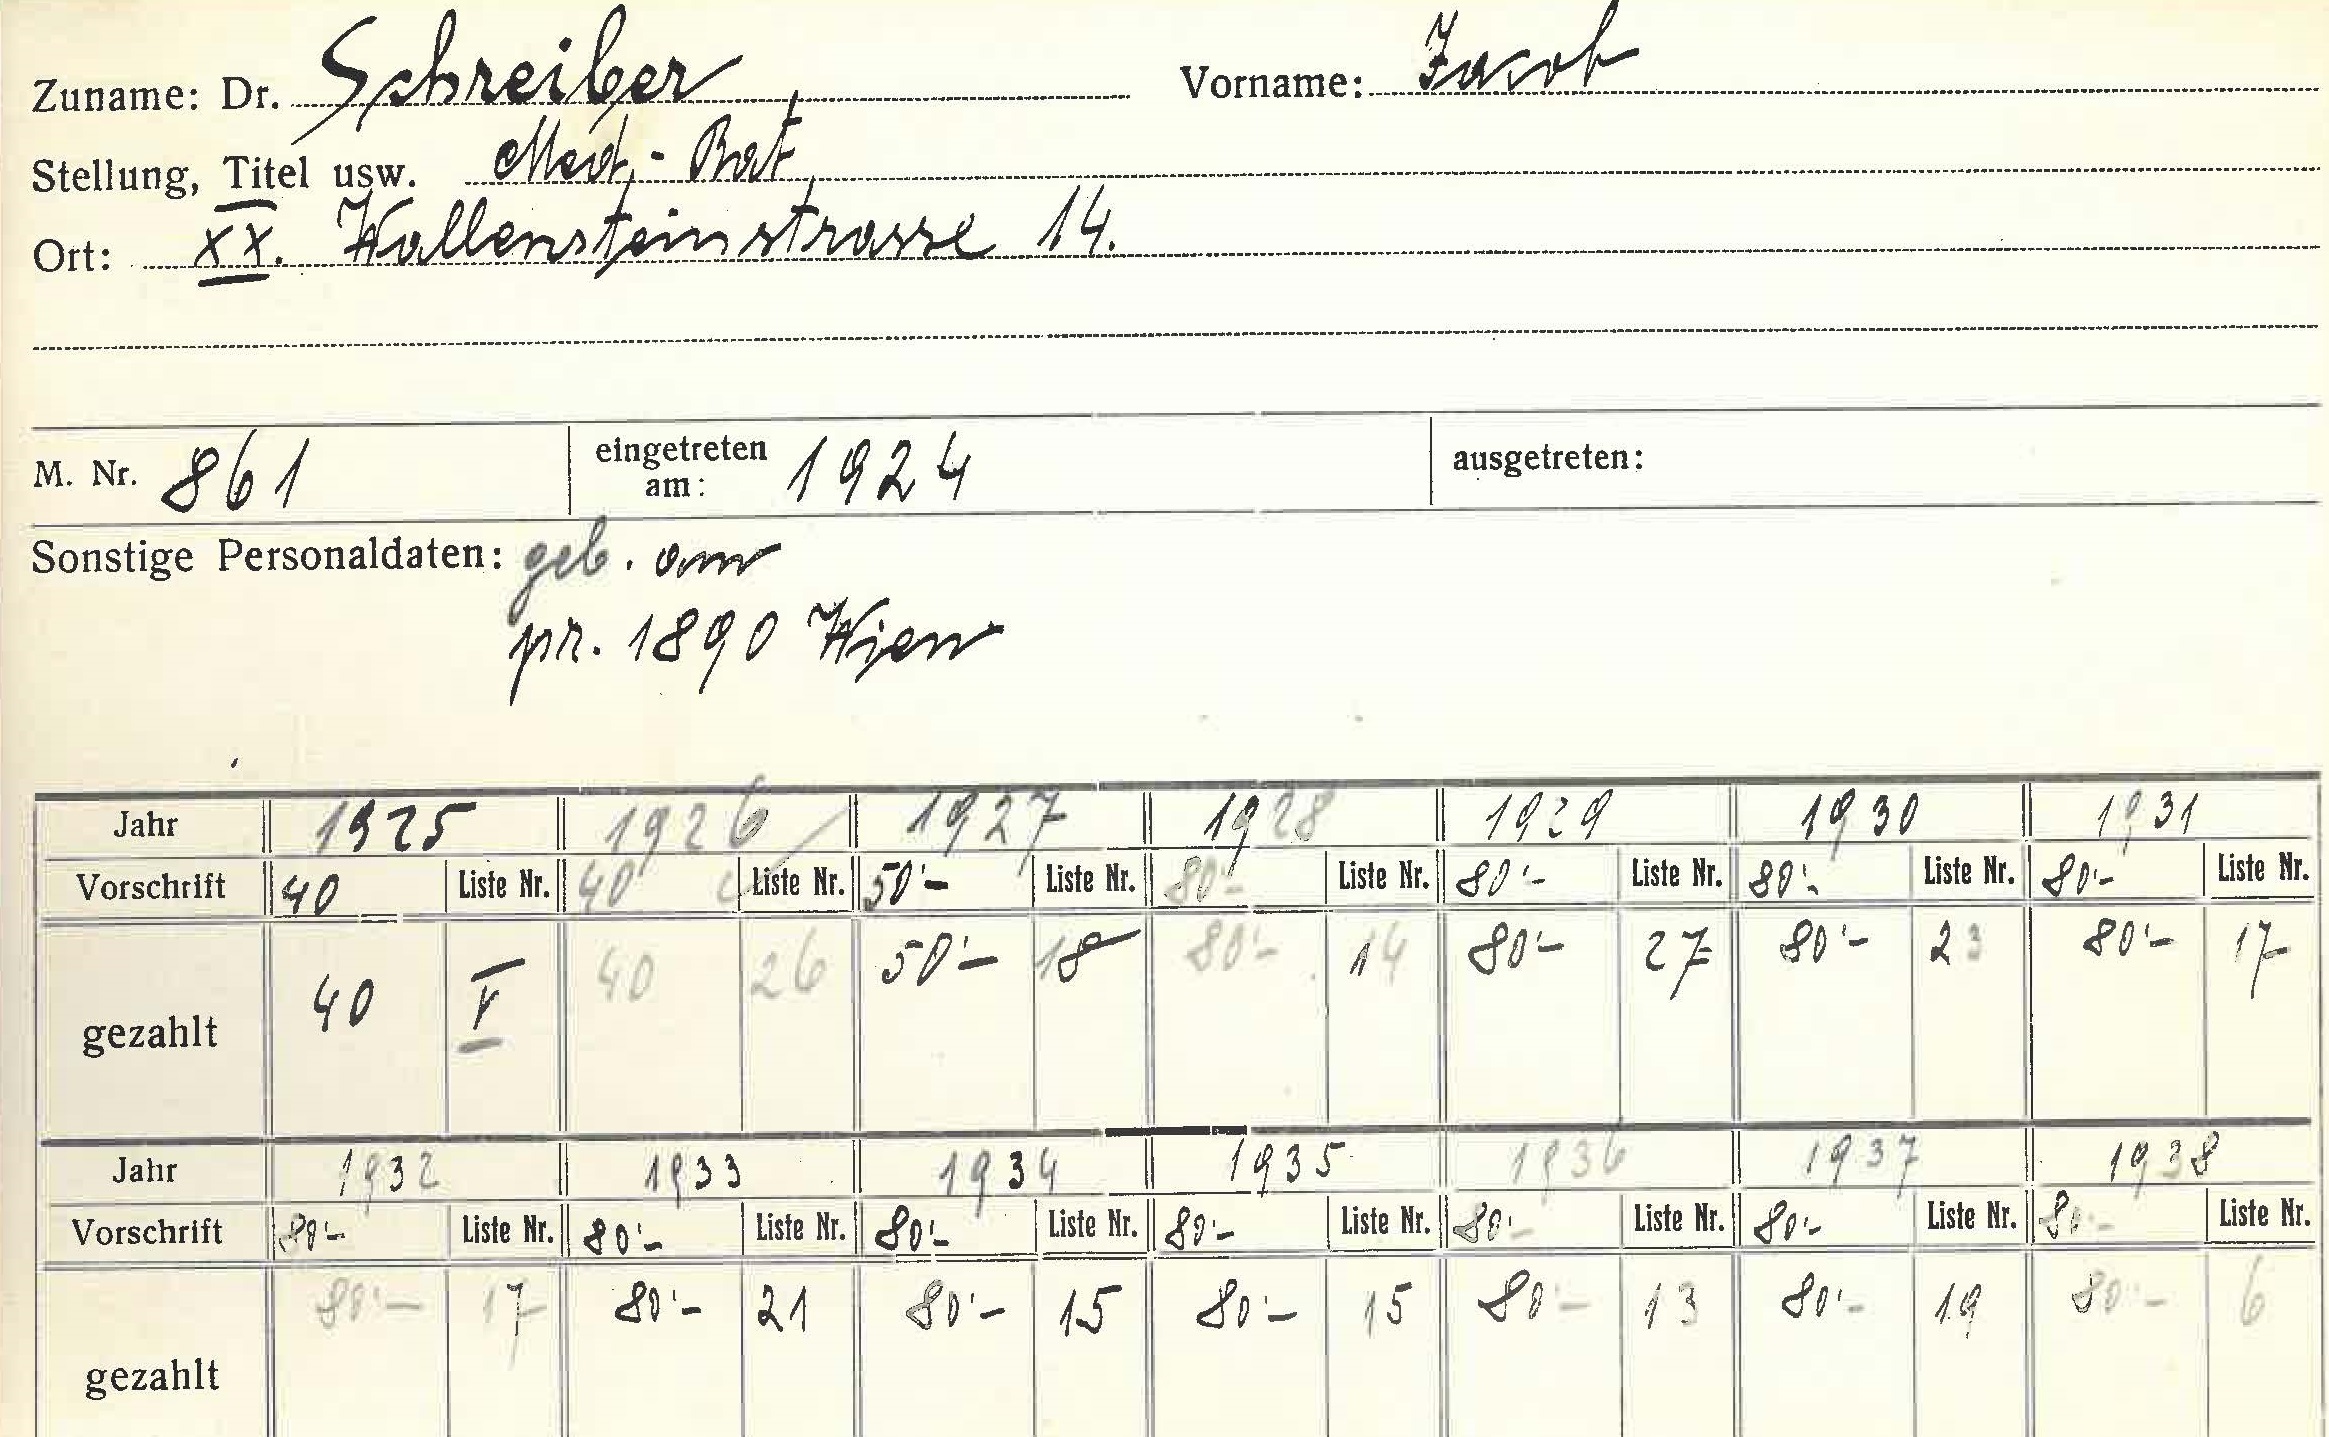 Zuname: Dr. Schreiber Vorname: Jacob
Stellung, Titel usw. Med.-Rat
Ort: XX. Wallensteinstrasse 14.
M. Nr. 861 eingetreten am: 1924 ausgetreten:
Sonstige Personaldaten: geb. am
pr. 1890 Wien
Jahr 1925 1926 1927 1928 1929 1930 1931
Vorschrift 40 Liste Nr. 40 Liste Nr. 50'- Liste Nr. 80'- Liste Nr. 80'- Liste Nr. 80'- Liste Nr. 80'- Liste Nr.
gezahlt 40 V 40 26 50'- 18 80'- 14 80'- 27 80'- 23 80'- 17
Jahr 1932 1933 1934 1935 1936 1937 1938
Vorschrift 80'- Liste Nr. 80'- Liste Nr. 80'- Liste Nr. 80'- Liste Nr. 80'- Liste Nr. 80'- Liste Nr. 80'- Liste Nr.
gezahlt 80'- 17 80'- 21 80'- 15 80'- 15 80'- 13 80'- 19 80'- 6